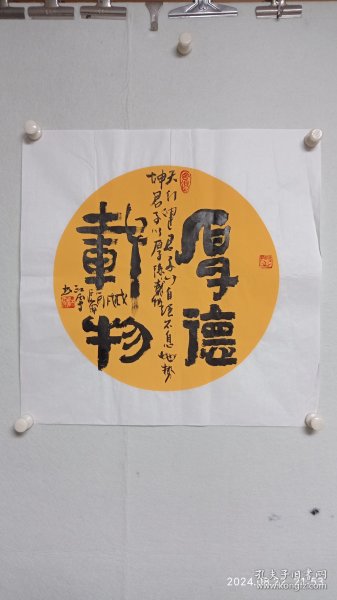 厚德
載物
天行健君子以自强不息地势
坤君子以厚德载物
2024.08.22 21:53
孔夫子旧书网